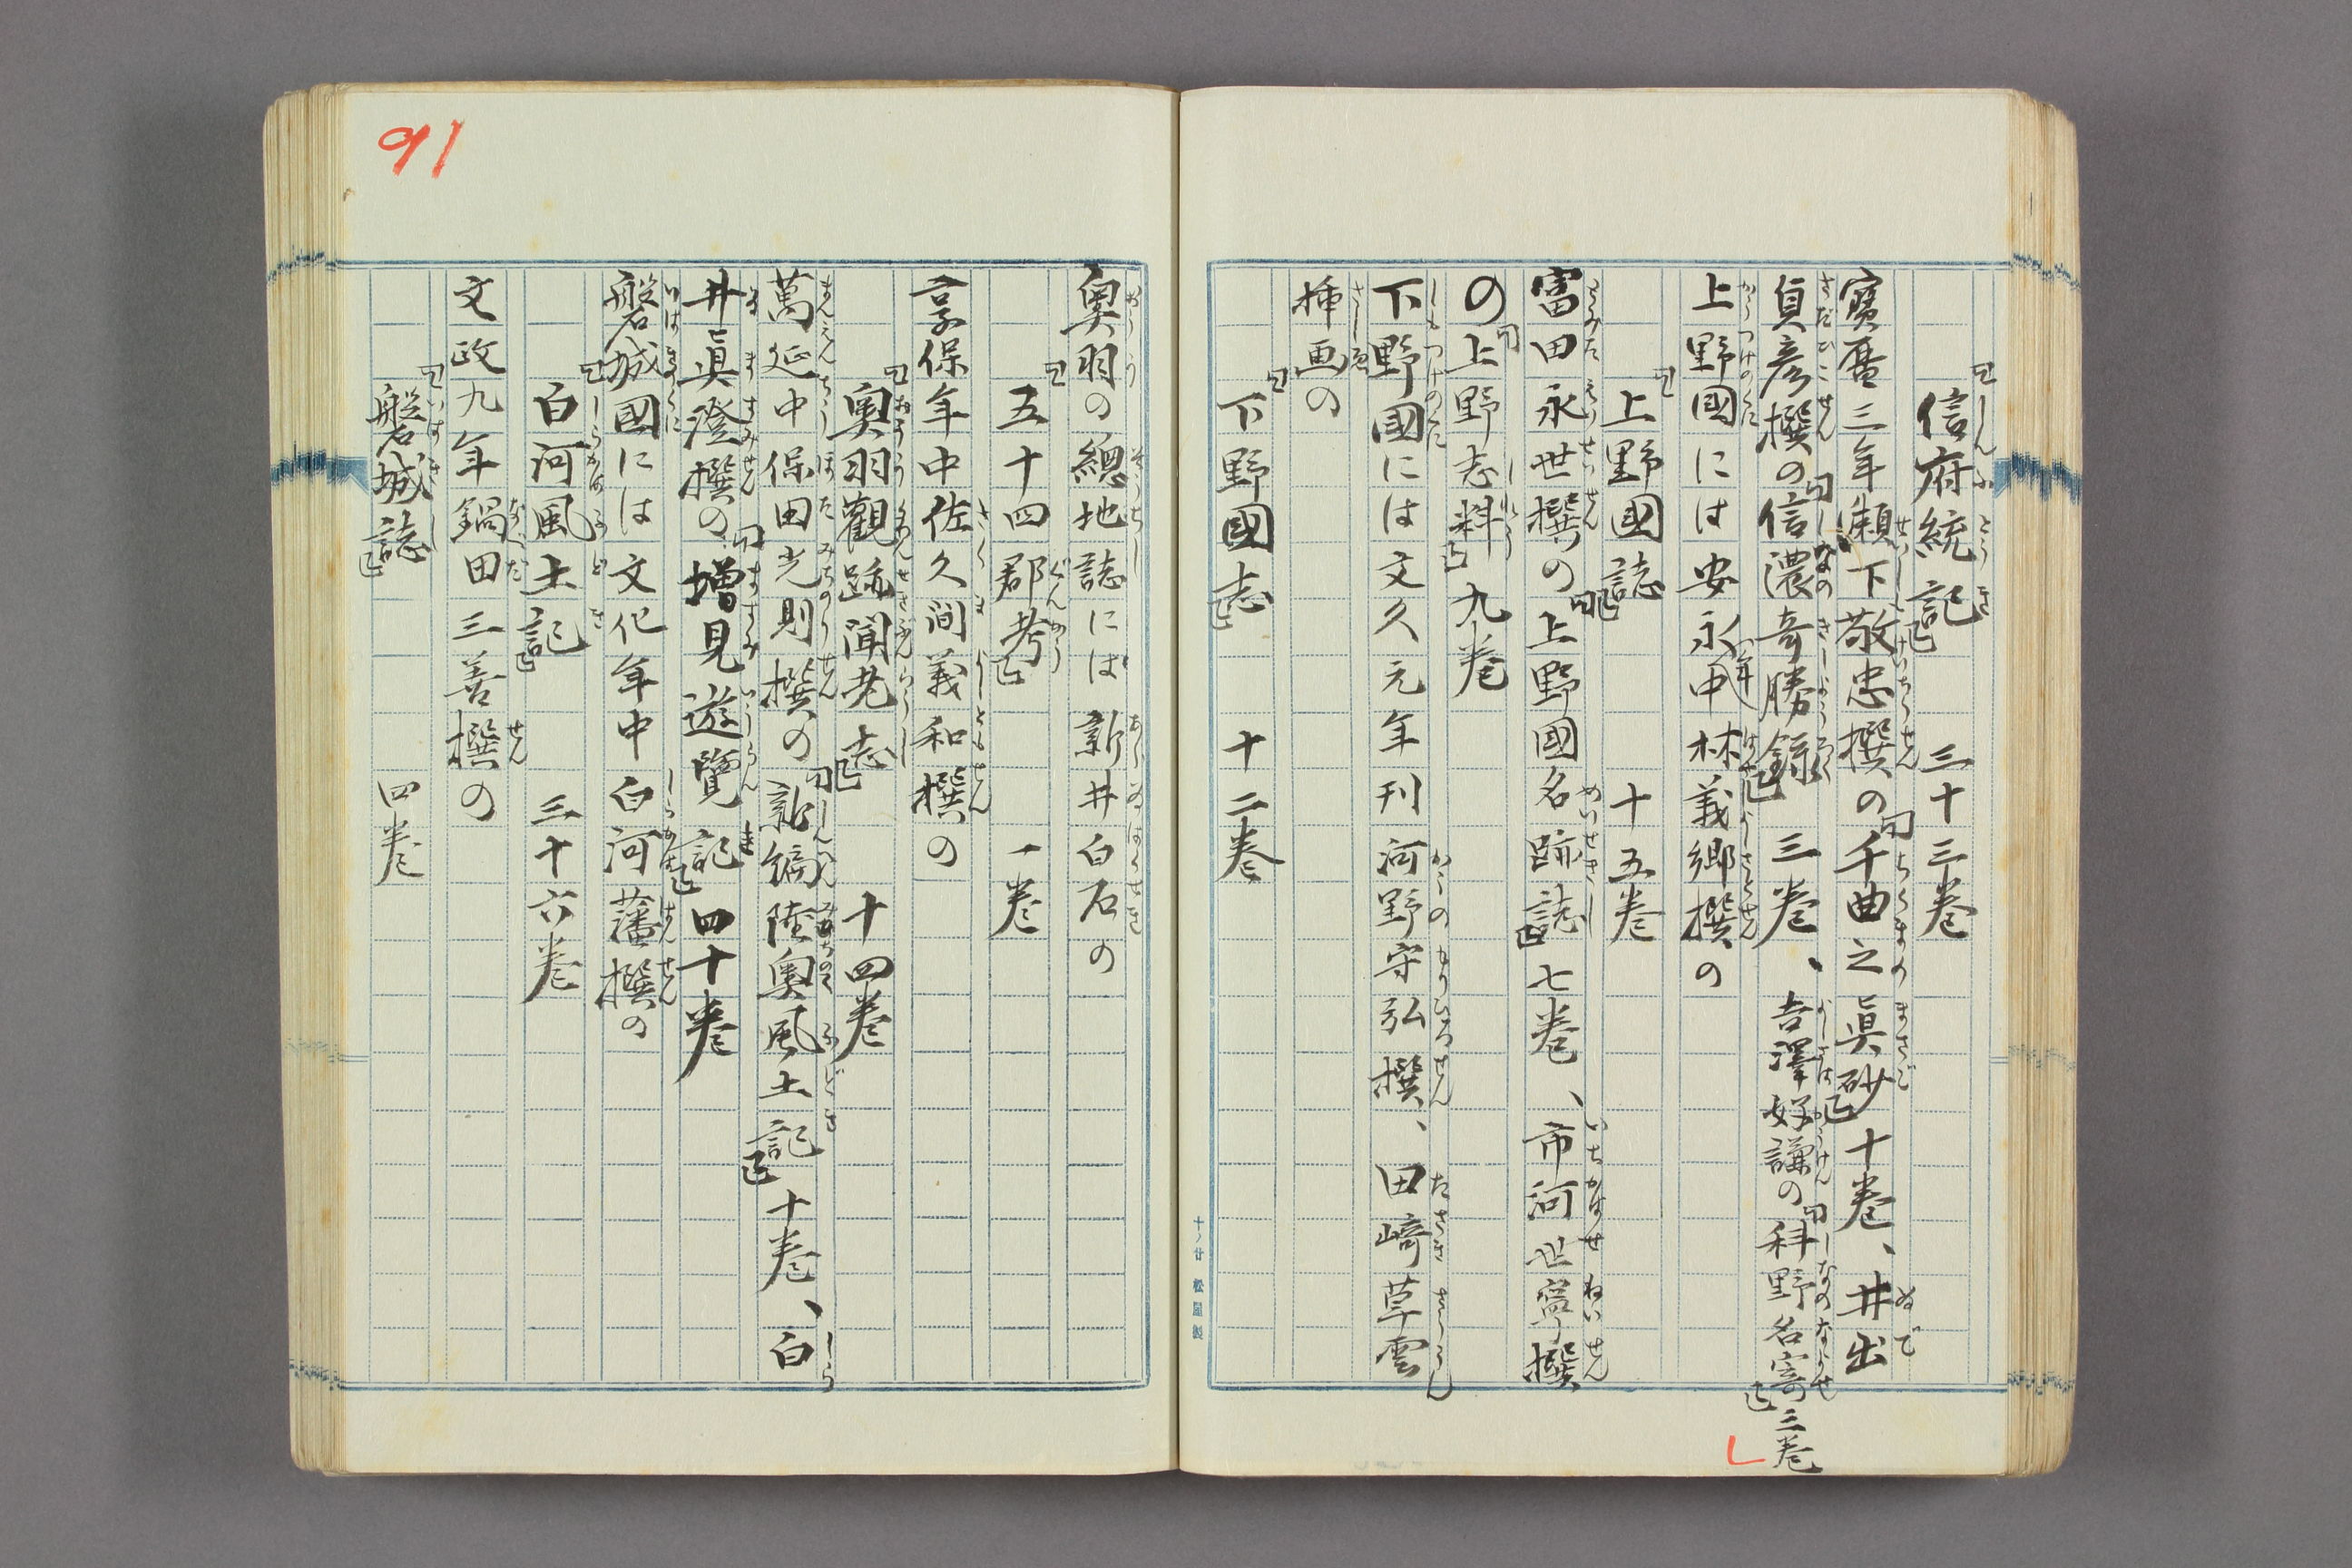 『信府統記』　三十三巻
寳暦三年瀬下敬忠撰の『千曲之眞砂』十巻、井出
貞彦撰の『信濃奇勝録』三巻、吉澤好謙の『科野名寄』三巻
上野國には安永年中林義郷撰の
『上野國誌』　十五巻
富田永世撰の『上野國名跡誌』七巻、市河世寧撰
の『上野志料』九巻
下野國には文久元年刊河野守弘撰、田﨑草雲
挿画の
『下野國志』　十二巻
十ノ廿 松屋製
91
奥羽の總地誌には新井白石の
『五十四郡考』　一巻
享保年中佐久間義和撰の
『奥羽觀跡聞老志』　十四巻
萬延中保田光則撰の『新編陸奥風土記』十巻、白
井眞澄撰の『増見遊覽記』四十巻
磐城國には文化年中白河藩撰の
『白河風土記』　三十六巻
文政九年鍋田三善撰の
『磐城誌』　四巻